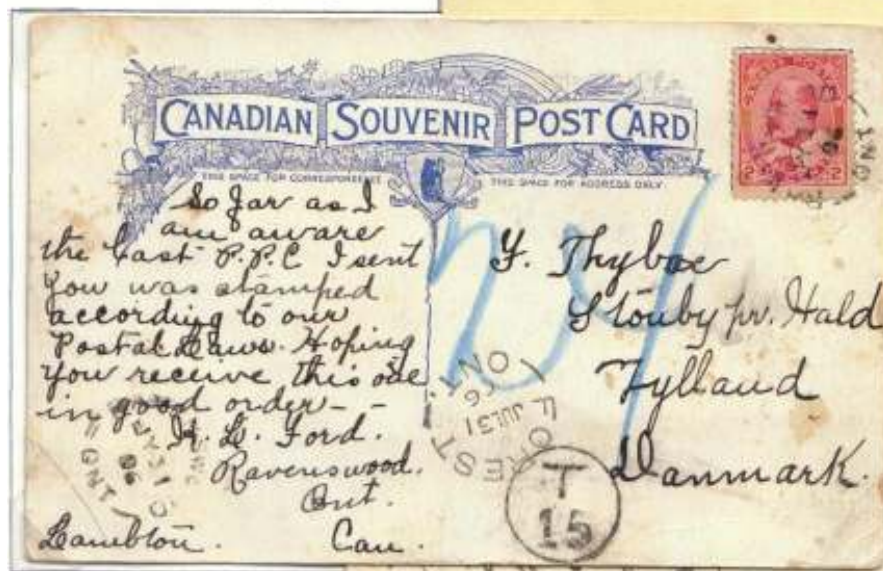 CANADIAN SOUVENIR POST CARD
THIS SPACE FOR CORRESPONDENCE
THIS SPACE FOR ADDRESS ONLY
So far as I
am aware
the Last P.P.C I sent
you was stamped
according to our
Postal Laws. Hoping
you receive this one
in good order - -
H. L. Ford.
Ravenswood.
Ont.
Lambton. Can.
Y. Thyboe
Stouby pr. Hald
Jylland
Danmark.
24
FOREST
JUL 31
06
ONT.
T
15
2 2
ONT
06